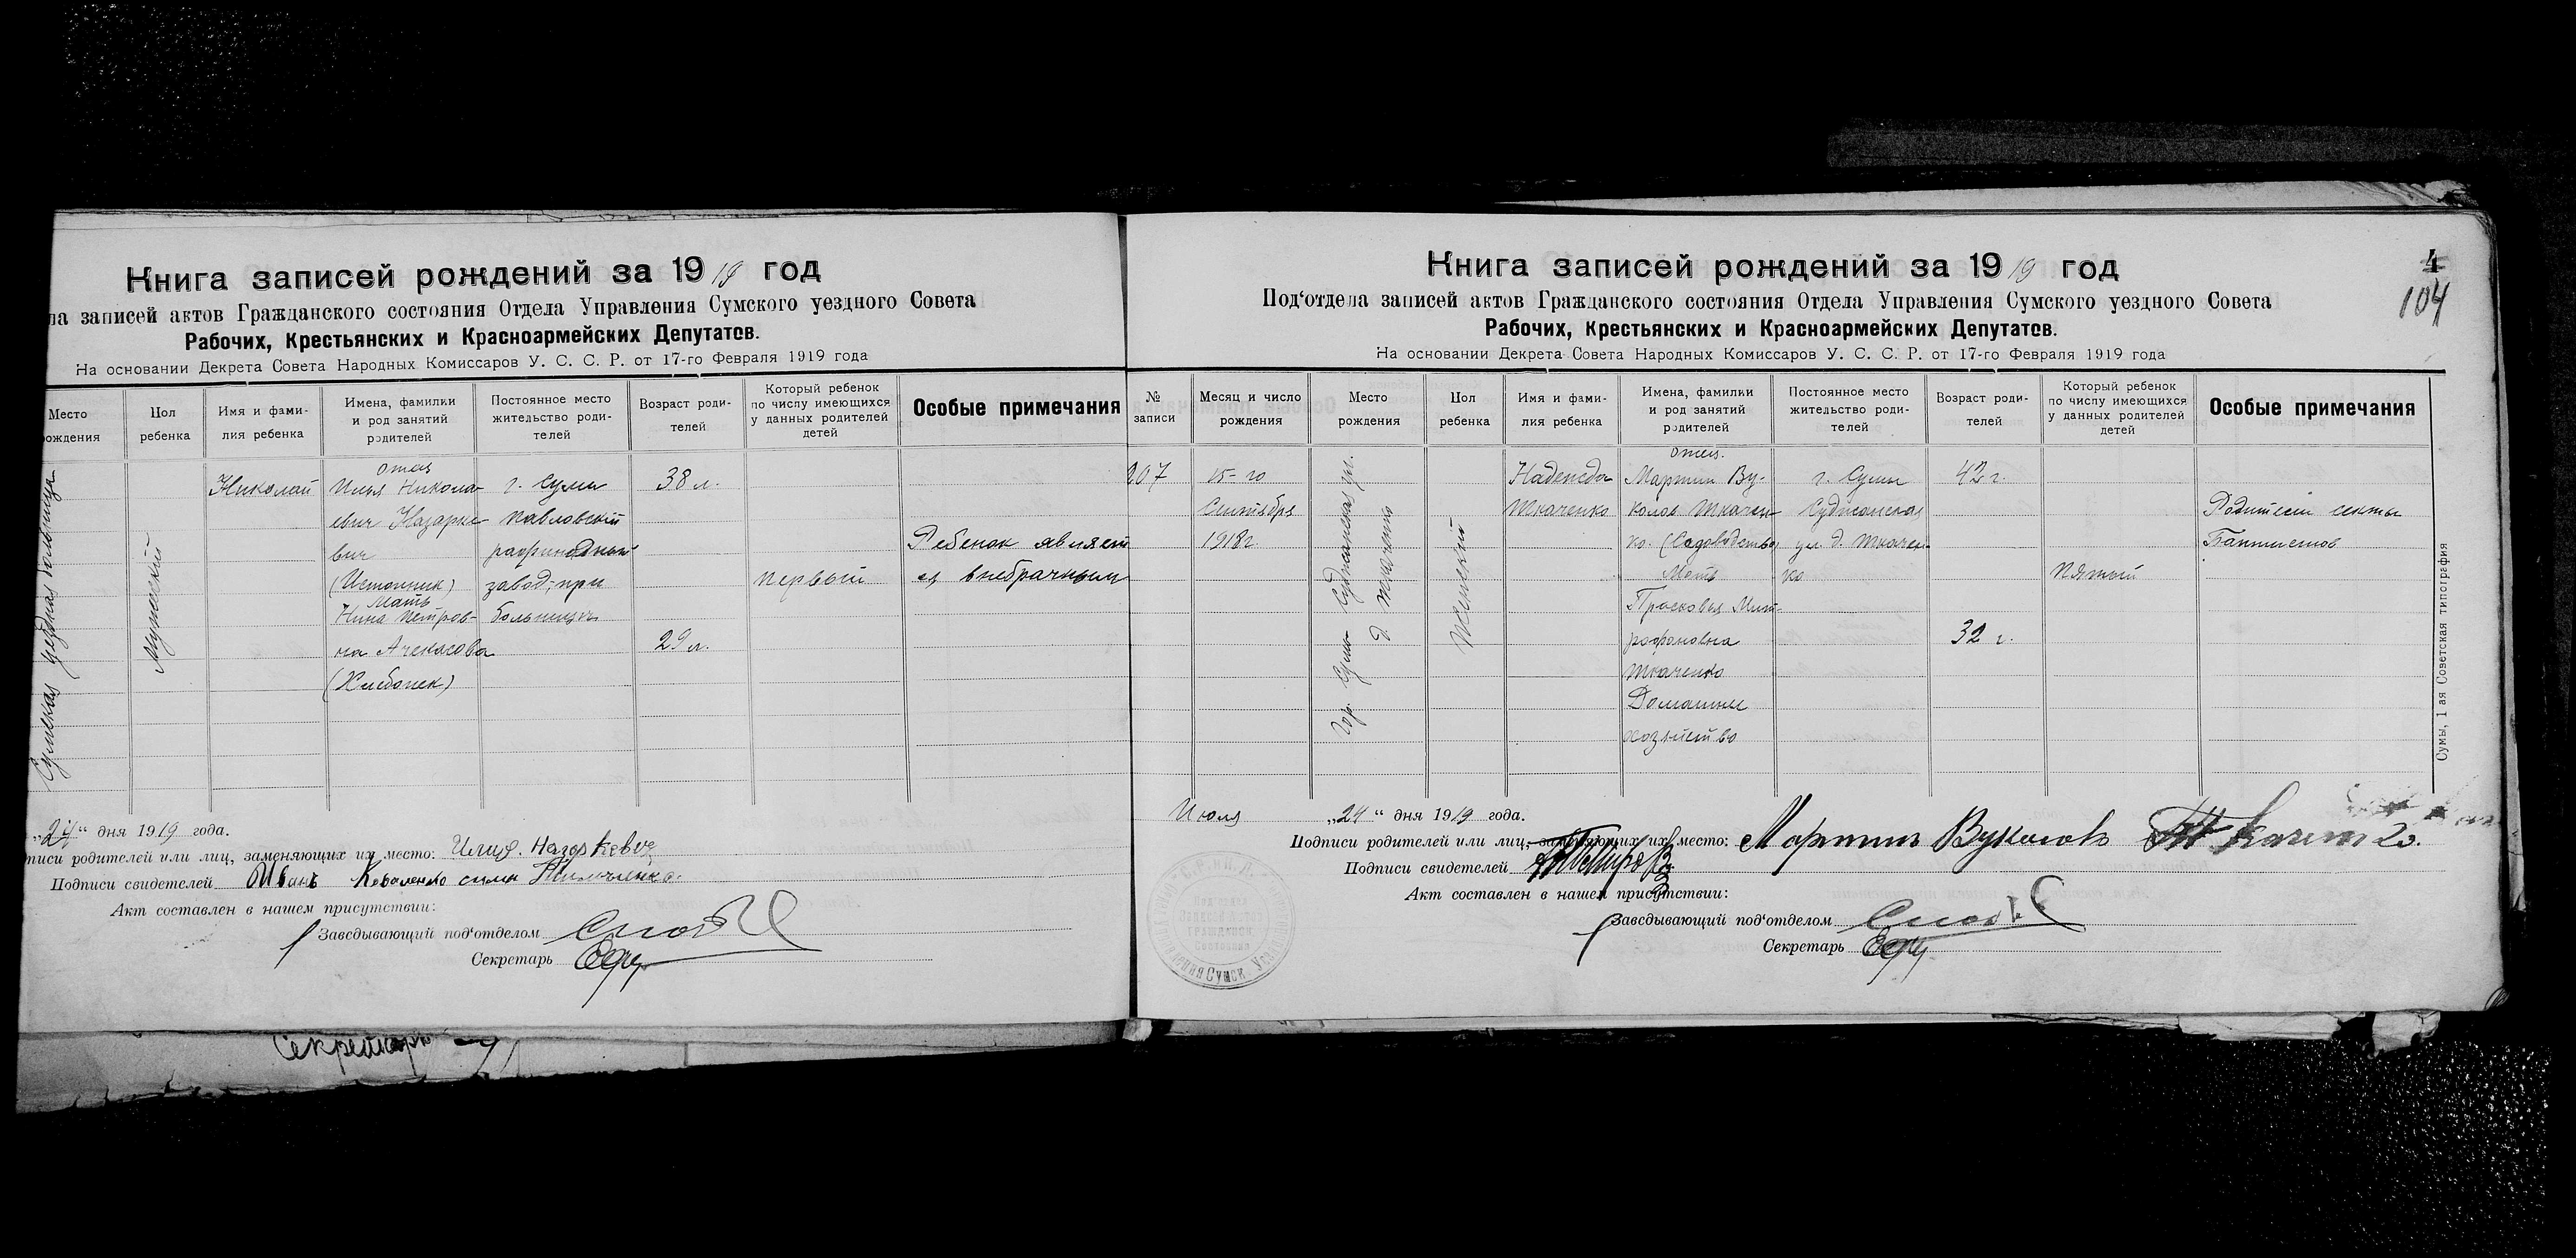 Книга записей рождений за 1919 год
ла записей актов Гражданского состояния Отдела Управления Сумского уездного Совета
Рабочих, Крестьянских и Красноармейских Депутатов.
На основании Декрета Совета Народных Комиссаров У. С. С. Р. от 17-го Февраля 1919 года
Место рождения
Пол ребенка
Имя и фами-
лия ребенка
Имена, фамилии
и род занятий
родителей
Постоянное место
жительство роди-
телей
Возраст роди-
телей
Который ребенок
по числу имеющихся
у данных родителей
детей
Особые примечания
Сумская уездная больница
Мужеский
Николай
отец
Илья Никола-
евич Назарке-
вич
(Истопник)
Мать
Нина Петров-
на Ачекасова
(Хлебопек)
г. Сумы
Павловский
рафинадный
завод, при
больницы
38 л.
29 л.
первый
Ребенок являет
ся внебрачным
„24“ дня 1919 года.
писи родителей или лиц, заменяющих их место: Илия. Назаркевич
Подписи свидетелей Иванъ Коваленко
Акт составлен в нашем присутствии:
Заведывающий под‘отделом
Секретарь
Секретарь
Книга записей рождений за 1919 год
4
104
Под‘отдела записей актов Гражданского состояния Отдела Управления Сумского уездного Совета
Рабочих, Крестьянских и Красноармейских Депутатов.
На основании Декрета Совета Народных Комиссаров У. С. С. Р. от 17-го Февраля 1919 года
№
записи
Месяц и число
рождения
Место
рождения
Пол
ребенка
Имя и фами-
лия ребенка
Имена, фамилии
и род занятий
родителей
Постоянное место
жительство роди-
телей
Возраст роди-
телей
Который ребенок
по числу имеющихся
у данных родителей
детей
Особые примечания
207
15-го
Сентября
1918 г.
Гор. Сумы Суджанская ул.
д. Ткаченко
Женский
Надежда
Ткаченко
отец.
Мартин Ву-
колов Ткачен-
ко. (Садоводство)
Мать
Прасковья Мит-
рофановна
Ткаченко
Домашнее
хозяйство
г. Сумы
Суджанская
ул. д. Ткачен-
ко
42 г.
32 г.
Пятый
Родители секты
Баптистов
Сумы, 1 ая Советская типография
Июля „24“ дня 1919 года.
Подписи родителей или лиц, заменяющих их место: Мартин Вуколовъ Ткаченко.
Подписи свидетелей
Акт составлен в нашем присутствии:
Заведывающий под‘отделом
Секретарь